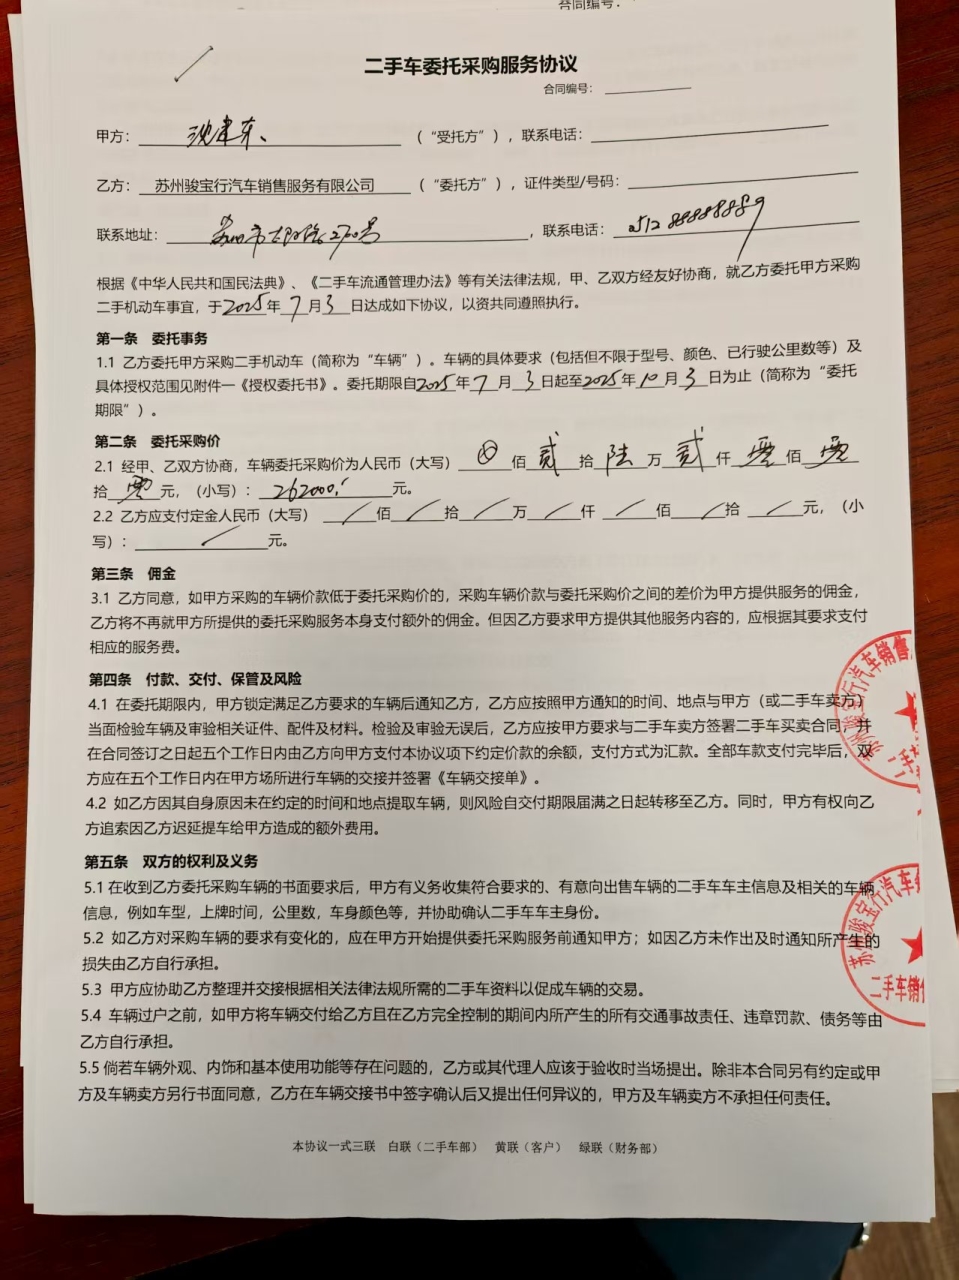 合同编号：
二手车委托采购服务协议
合同编号：
甲方：沈建东、（“受托方”），联系电话：
乙方：苏州骏宝行汽车销售服务有限公司（“委托方”），证件类型/号码：
联系地址：苏州市 路2700号，联系电话：0512 88888889
根据《中华人民共和国民法典》、《二手车流通管理办法》等有关法律法规，甲、乙双方经友好协商，就乙方委托甲方采购
二手机动车事宜，于2025年7月3日达成如下协议，以资共同遵照执行。
第一条 委托事务
1.1 乙方委托甲方采购二手机动车（简称为“车辆”）。车辆的具体要求（包括但不限于型号、颜色、已行驶公里数等）及
具体授权范围见附件一《授权委托书》。委托期限自2025年7月3日起至2025年10月3日为止（简称为“委托
期限”）。
第二条 委托采购价
2.1 经甲、乙双方协商，车辆委托采购价为人民币（大写）⊗佰贰拾陆万贰仟零佰零
拾零元，（小写）：262000.元。
2.2 乙方应支付定金人民币（大写）/佰/拾/万/仟/佰/拾/元，（小
写）：/元。
第三条 佣金
3.1 乙方同意，如甲方采购的车辆价款低于委托采购价的，采购车辆价款与委托采购价之间的差价为甲方提供服务的佣金，
乙方将不再就甲方所提供的委托采购服务本身支付额外的佣金。但因乙方要求甲方提供其他服务内容的，应根据其要求支付
相应的服务费。
第四条 付款、交付、保管及风险
4.1 在委托期限内，甲方锁定满足乙方要求的车辆后通知乙方，乙方应按照甲方通知的时间、地点与甲方（或二手车卖方）
当面检验车辆及审验相关证件、配件及材料。检验及审验无误后，乙方应按甲方要求与二手车卖方签署二手车买卖合同，并
在合同签订之日起五个工作日内由乙方向甲方支付本协议项下约定价款的余额，支付方式为汇款。全部车款支付完毕后，双
方应在五个工作日内在甲方场所进行车辆的交接并签署《车辆交接单》。
4.2 如乙方因其自身原因未在约定的时间和地点提取车辆，则风险自交付期限届满之日起转移至乙方。同时，甲方有权向乙
方追索因乙方迟延提车给甲方造成的额外费用。
第五条 双方的权利及义务
5.1 在收到乙方委托采购车辆的书面要求后，甲方有义务收集符合要求的、有意向出售车辆的二手车车主信息及相关的车辆
信息，例如车型，上牌时间，公里数，车身颜色等，并协助确认二手车车主身份。
5.2 如乙方对采购车辆的要求有变化的，应在甲方开始提供委托采购服务前通知甲方；如因乙方未作出及时通知所产生的
损失由乙方自行承担。
5.3 甲方应协助乙方整理并交接根据相关法律法规所需的二手车资料以促成车辆的交易。
5.4 车辆过户之前，如甲方将车辆交付给乙方且在乙方完全控制的期间内所产生的所有交通事故责任、违章罚款、债务等由
乙方自行承担。
5.5 倘若车辆外观、内饰和基本使用功能等存在问题的，乙方或其代理人应该于验收时当场提出。除非本合同另有约定或甲
方及车辆卖方另行书面同意，乙方在车辆交接书中签字确认后又提出任何异议的，甲方及车辆卖方不承担任何责任。
本协议一式三联 白联（二手车部） 黄联（客户） 绿联（财务部）
苏州骏宝行汽车销售
二手
苏州骏宝行汽车
二手车销